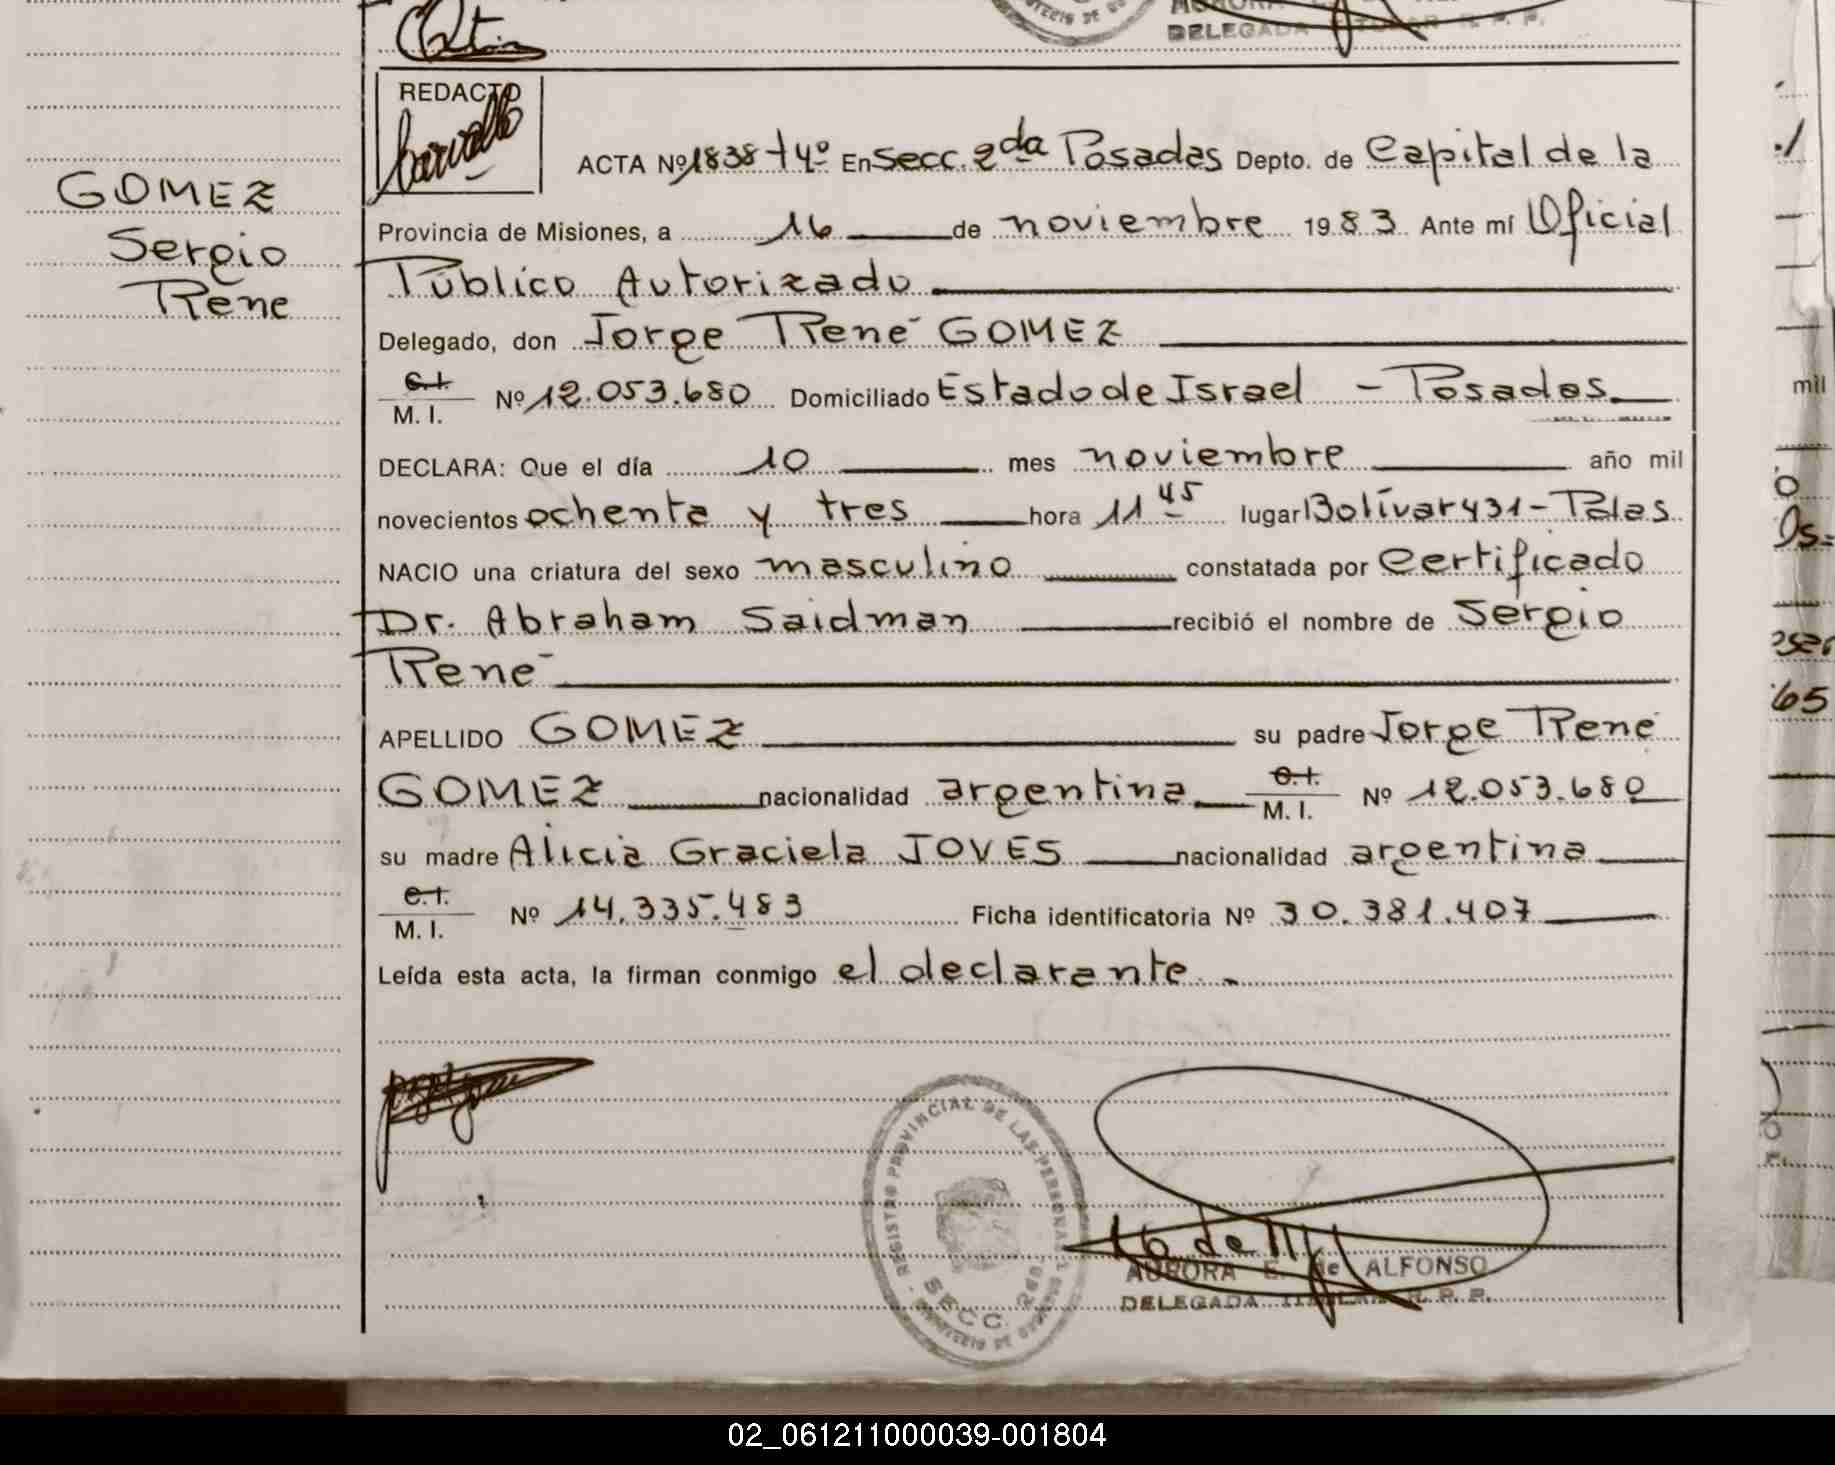 DELEGADA TITULAR R. P. P.
REDACTO
GOMEZ
Sergio
Rene
ACTA Nº 1838 tº 4º En Secc. 2da Posadas Depto. de Capital de la
Provincia de Misiones, a 16 de noviembre 1983 Ante mí Oficial
Público Autorizado
Delegado, don Jorge René GOMEZ
C.I.
M. I. Nº 12.053.680 Domiciliado Estado de Israel - Posadas
DECLARA: Que el día 10 mes noviembre año mil
novecientos ochenta y tres hora 11 45 lugar Bolívar 431 - Pdas
NACIO una criatura del sexo masculino constatada por Certificado
Dr. Abraham Saidman recibió el nombre de Sergio
René
APELLIDO GOMEZ su padre Jorge René
GOMEZ nacionalidad argentina C.I.
M. I. Nº 12.053.680
su madre Alicia Graciela JOVES nacionalidad argentina
C.I.
M. I. Nº 14.335.483 Ficha identificatoria Nº 30.381.407
Leída esta acta, la firman conmigo el declarante.-
REGISTRO PROVINCIAL DE LAS PERSONAS
SECC. 2da
AURORA E. de ALFONSO
DELEGADA TITULAR R. P. P.
mil
65
02_061211000039-001804